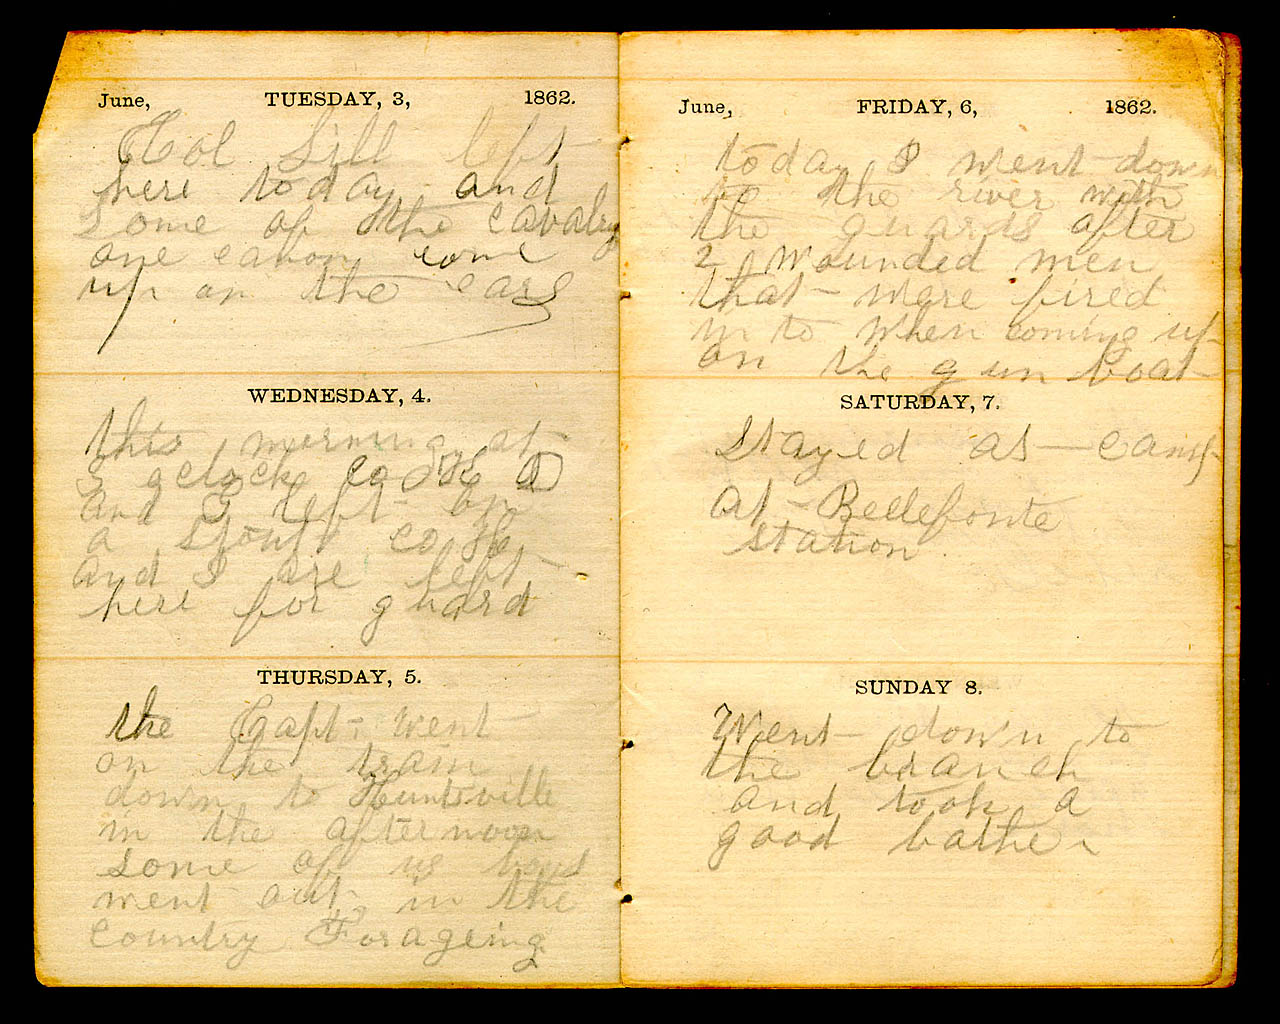 June, TUESDAY, 3, 1862.
Col Sill left
here today and
Some of the cavalry
one canon come
up on the cars
WEDNESDAY, 4.
this morning at
3 oclock co
and G left on
a scout co H
and I are left
here for guard
THURSDAY, 5.
the Capt. went
on the train
down to Huntsville
in the afternoon
some of us boys
went out in the
country Forageing
June, FRIDAY, 6, 1862.
today I went down
to the river with
the guards after
2 wounded men
that were fired
in to when coming up
on the gun boat
SATURDAY, 7.
Stayed at camp
at Bellefonte
station
SUNDAY 8.
Went down to
the branch
and took a
good bathe